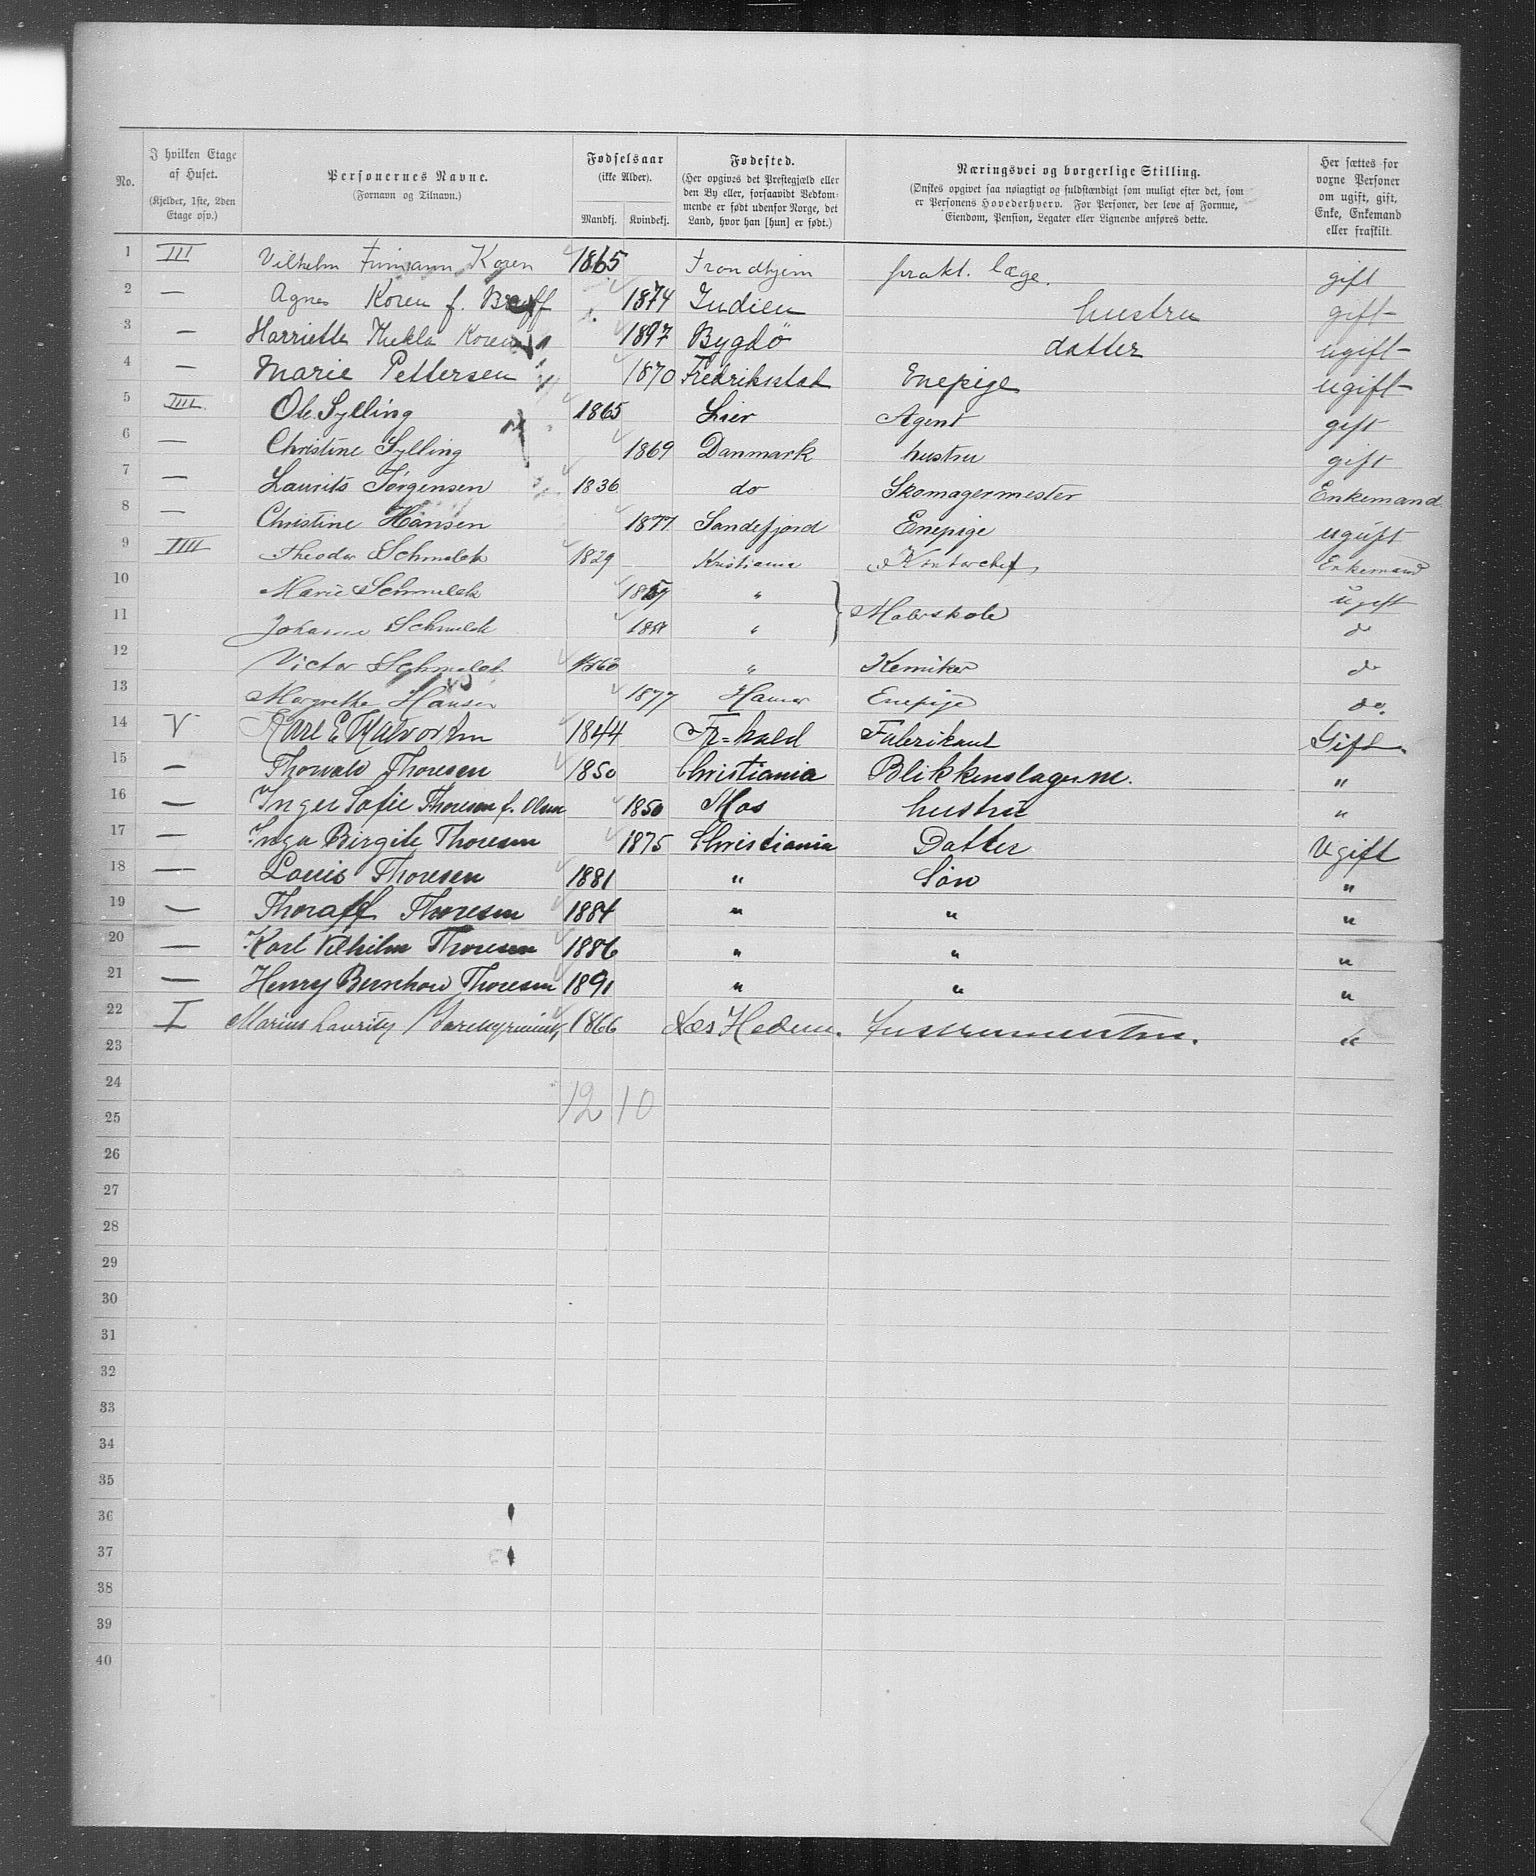 No. | I hvilken Etage af Huset. (Kjelder, 1ste, 2den Etage osv.) | Personernes Navne. (Fornavn og Tilnavn.) | Fødselsaar (ikke Alder). Mandkj. Kvindekj. | Fødested. (Her opgives det Prestegjæld eller den By eller, forsaavidt Vedkommende er født udenfor Norge, det Land, hvor han [hun] er født.) | Næringsvei og borgerlige Stilling. (Ønskes opgivet saa nøiagtigt og fuldstændigt som muligt efter det, som er Personens Hovederhverv. For Personer, der leve af Formue, Eiendom, Pension, Legater eller Lignende anføres dette. | Her sættes for voxne Personer om ugift, gift, Enke, Enkemand eller fraskilt.
1 III Vilhelm Koren 1865 Trondhjem prakt. læge. gift
2 — Agnes Koren f. 1874 Indien hustru gift
3 — Harriette Thekla Koren 1897 Bygdö datter ugift
4 — Marie Pettersen 1870 Fredriksstad Enepige ugift
5 IIII. Ole Sylling 1865 Lier Agent gift
6 — Christine Sylling 1869 Danmark hustru gift
7 — Laurits Jørgensen 1836 do Skomagermester Enkemand
8 — Christine Hansen 1877 Sandefjord Enepige ugift
9 IIII Theodor Schmelck 1829 Kristiania Kontorchef, Enkemand
10 Marie Schmelck " } Malerskole ugift
11 Johanna Schmelck " do
12 Victor Schmelck 1860 " Kemiker do
13 Margrethe Hansen 1877 Hamar Enepige do.
14 V Karl E 1844 Fr=hald Fabrikant Gift.
15 — Thorvald Thoresen 1850 Christiania Blikkenslagerm. "
16 — Inger Sofie Thoresen f. Olsen 1850 Mos hustru "
17 — Inga Birgite Thoresen 1875 Christiania Datter Ugift
18 — Louis Thoresen 1881 " Søn "
19 — Thoralf Thoresen 1884 " " "
20 — Karl Vilhilm Thoresen 1886 " " "
21 — Henry Bernhow Thoresen 1891 " " "
22 I Marius Lauritz 1866 Næs Hedem. "
23
24
12 10
25
26
27
28
29
30
31
32
33
34
35
36
37
38
39
40